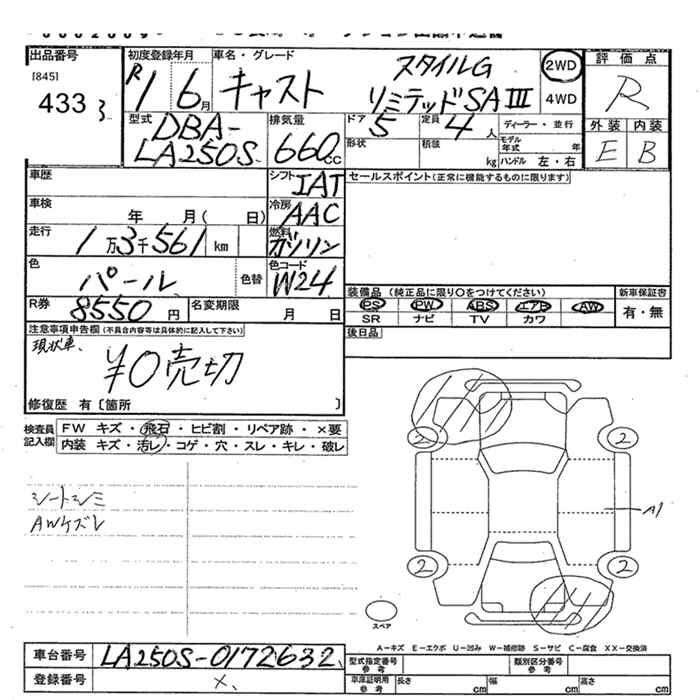 出品番号
[845]
4333
初度登録年月
R1 6月
車名・グレード
キャスト
スタイルG
リミテッドSAⅢ
2WD
4WD
評価点
R
外装 内装
E B
型式
DBA-
LA250S
排気量
660cc
ドア 5
定員 4人
ディーラー・並行
形状
積載 kg
モデル年式 年
ハンドル 左・右
車歴
シフト IAT
セールスポイント(正常に機能するものに限ります)
車検 年 月( 日)
冷房 AAC
走行 1万3千561 km
燃料 ガソリン
色 パール 色替
色コード W24
装備品 (純正品に限り○をつけてください)
新車保証書
PS PW ABS エアB AW
有・無
SR ナビ TV カワ
R券 8550円
名変期限 月 日
後日品
注意事項申告欄(不具合内容等は具体的に記入して下さい)
現状車、
¥0売切
修復歴 有[箇所 ]
検査員記入欄
FW キズ・飛石・ヒビ割・リペア跡・×要
内装 キズ・汚レ・コゲ・穴・スレ・キレ・破レ
シートシミ
AWケズレ
2 2
A1
2 2
スペア
A-キズ E-エクボ U-凹み W-補修跡 S-サビ C-腐食 XX-交換済
車台番号 LA250S-0172632
登録番号 ×
型式指定番号 参考
類別区分番号 参考
車庫証明用 参考
長さ cm
幅 cm
高さ cm